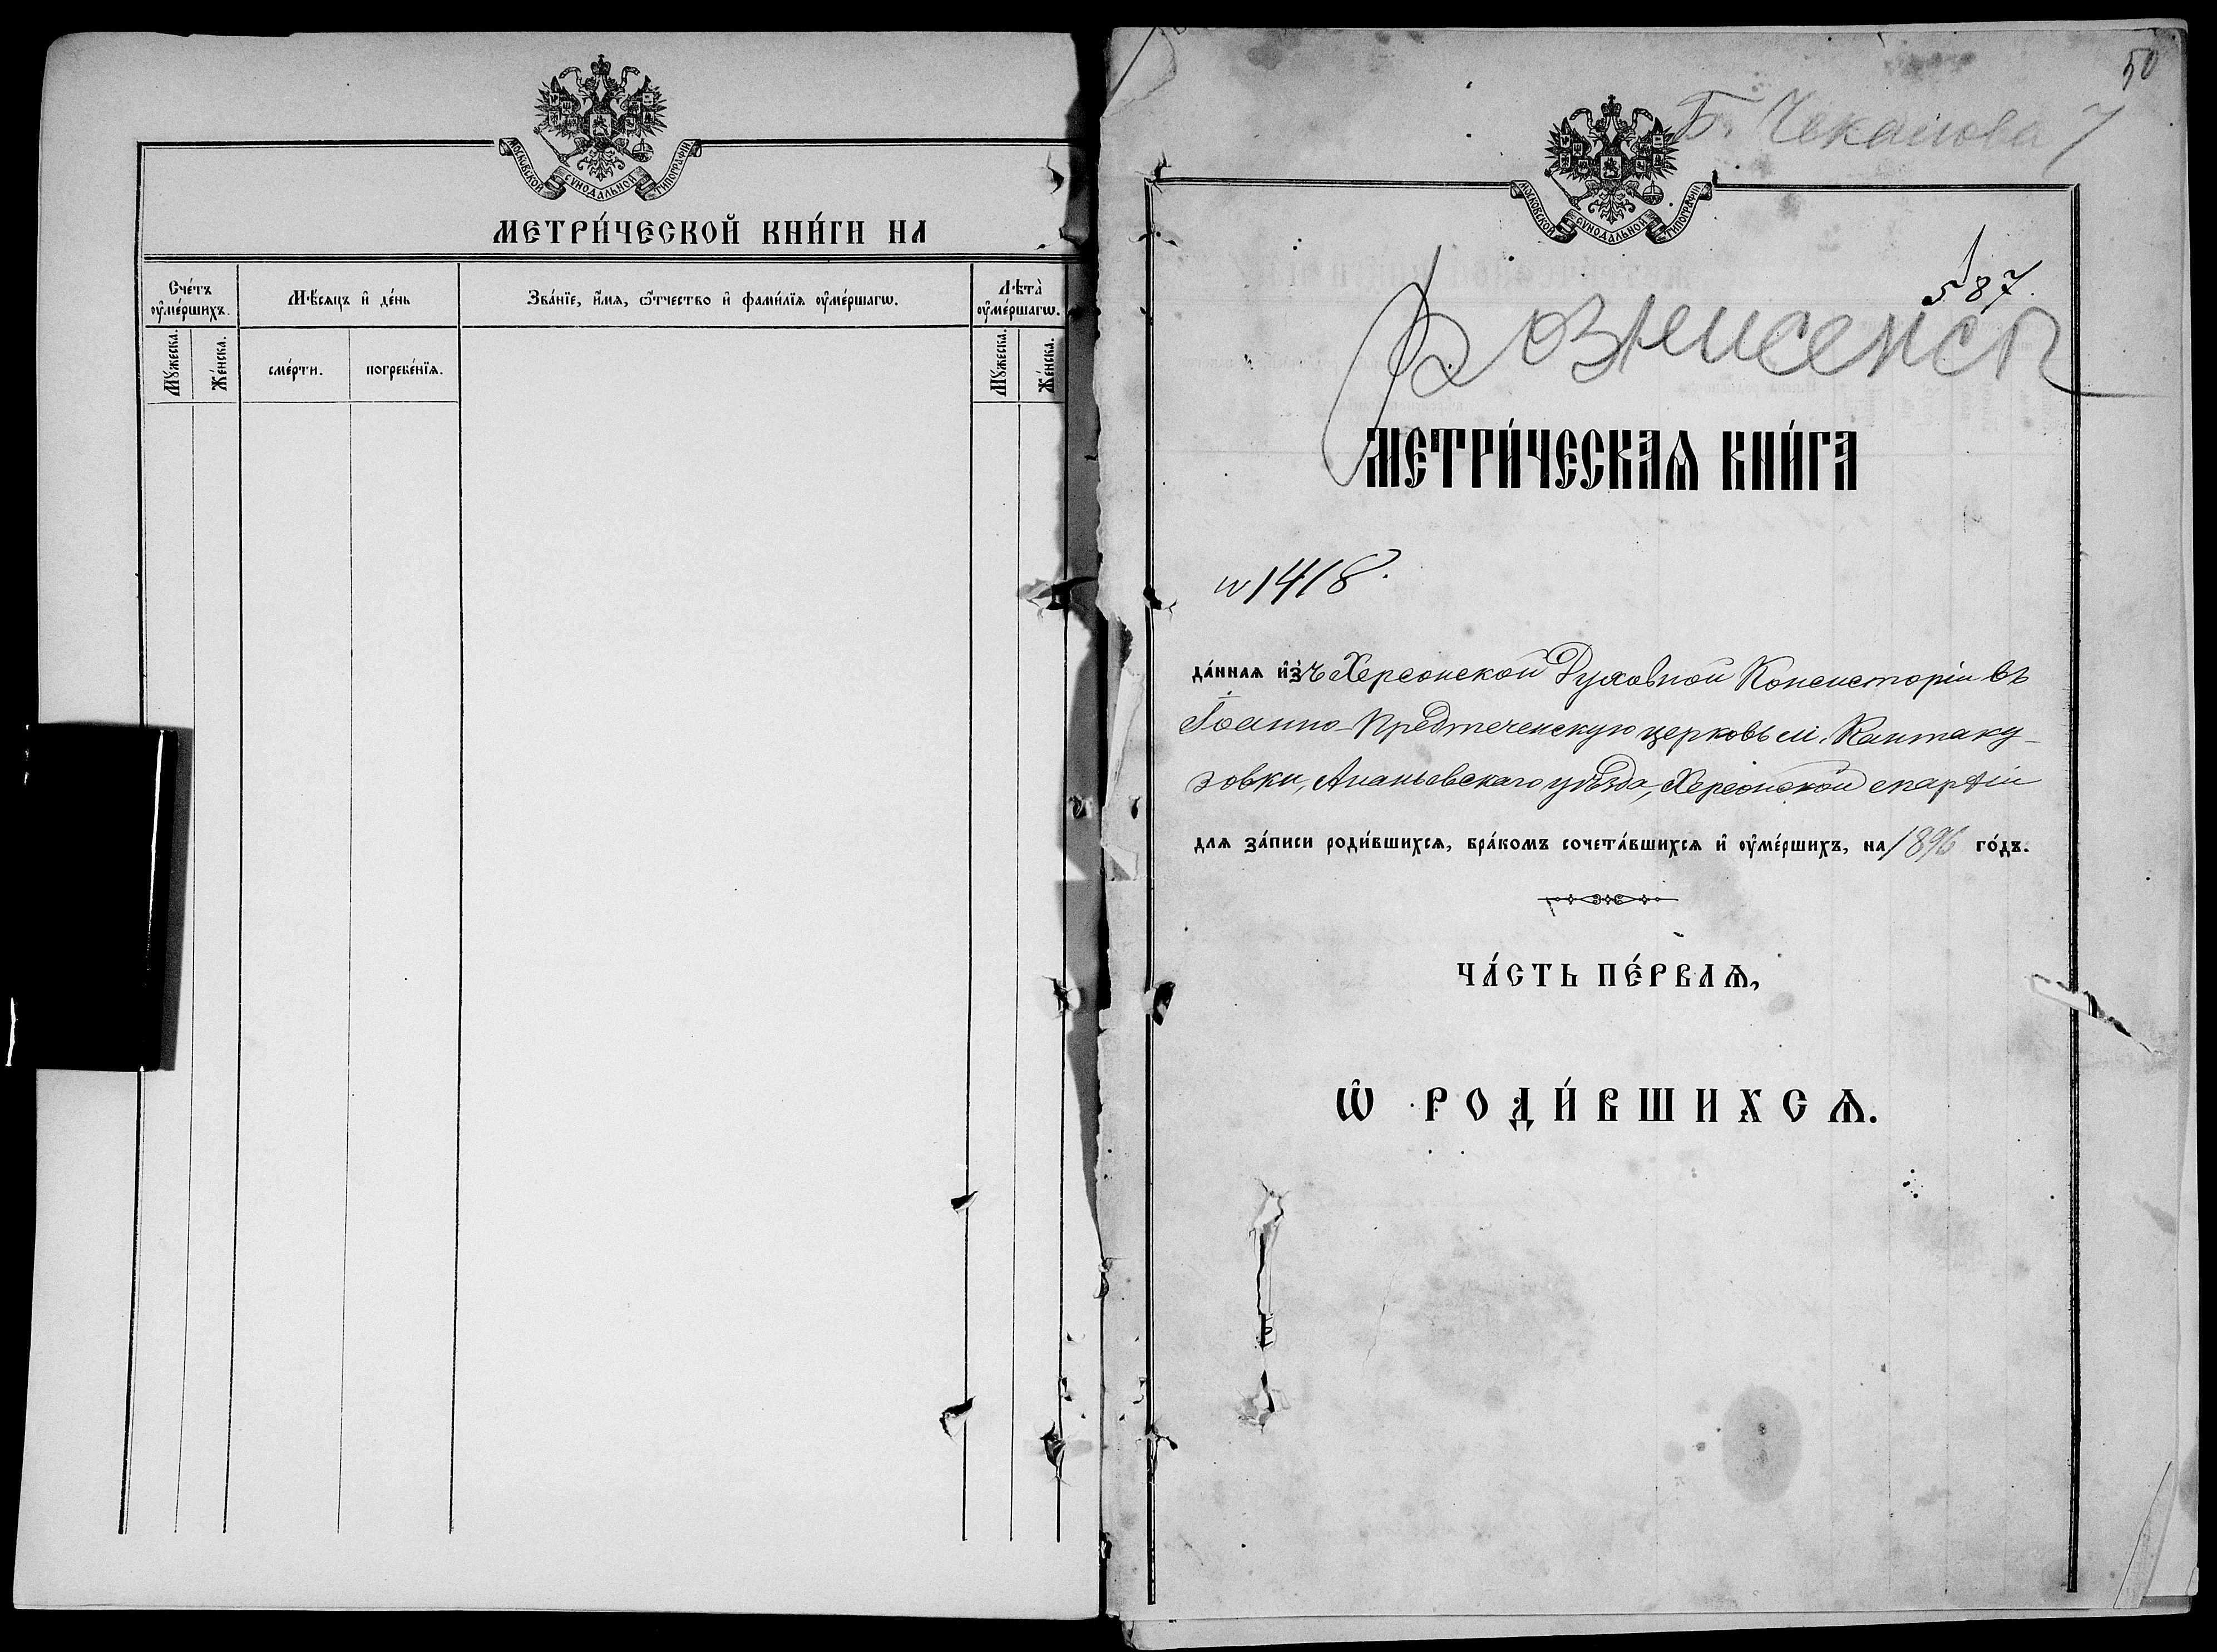 МОСКОВСКОЙ СѴНОДАЛЬНОЙ ТИПОГРАФІИ
МЕТРИ́ЧЕСКОЙ КНИ́ГИ НА
Сче́тъ ᲂу҆ме́ршихъ.
Мѣ́сяцъ и҆ де́нь
Зва́нїе, и҆́мя, ѻ҆́тчество и҆ фами́лїя ᲂу҆ме́ршагѡ.
Лѣта̀ ᲂу҆ме́ршагѡ.
Мꙋ́жеска.
Же́нска.
сме́рти.
погребе́нїя.
Мꙋ́жеска.
Же́нска.
50
Б. Чекалова 7
МОСКОВСКОЙ СѴНОДАЛЬНОЙ ТИПОГРАФІИ
587.
МЕТРИ́ЧЕСКАѦ КНИ́ГА
№ 1418.
да́ннаѧ и҆зъ Херсонской Духовной Консисторіи въ
Іоанно-Предтеченскую церковь м. Кантаку-
зовки, Ананьевскаго уѣзда, Херсонской епархіи
длѧ за́писи роди́вшихсѧ, бра́комъ сочета́вшихсѧ и҆ ᲂу҆ме́ршихъ, на 1896 го́дъ.
ЧА́СТЬ ПЕ́РВАѦ,
Ѽ РОДИ́ВШИХСѦ.